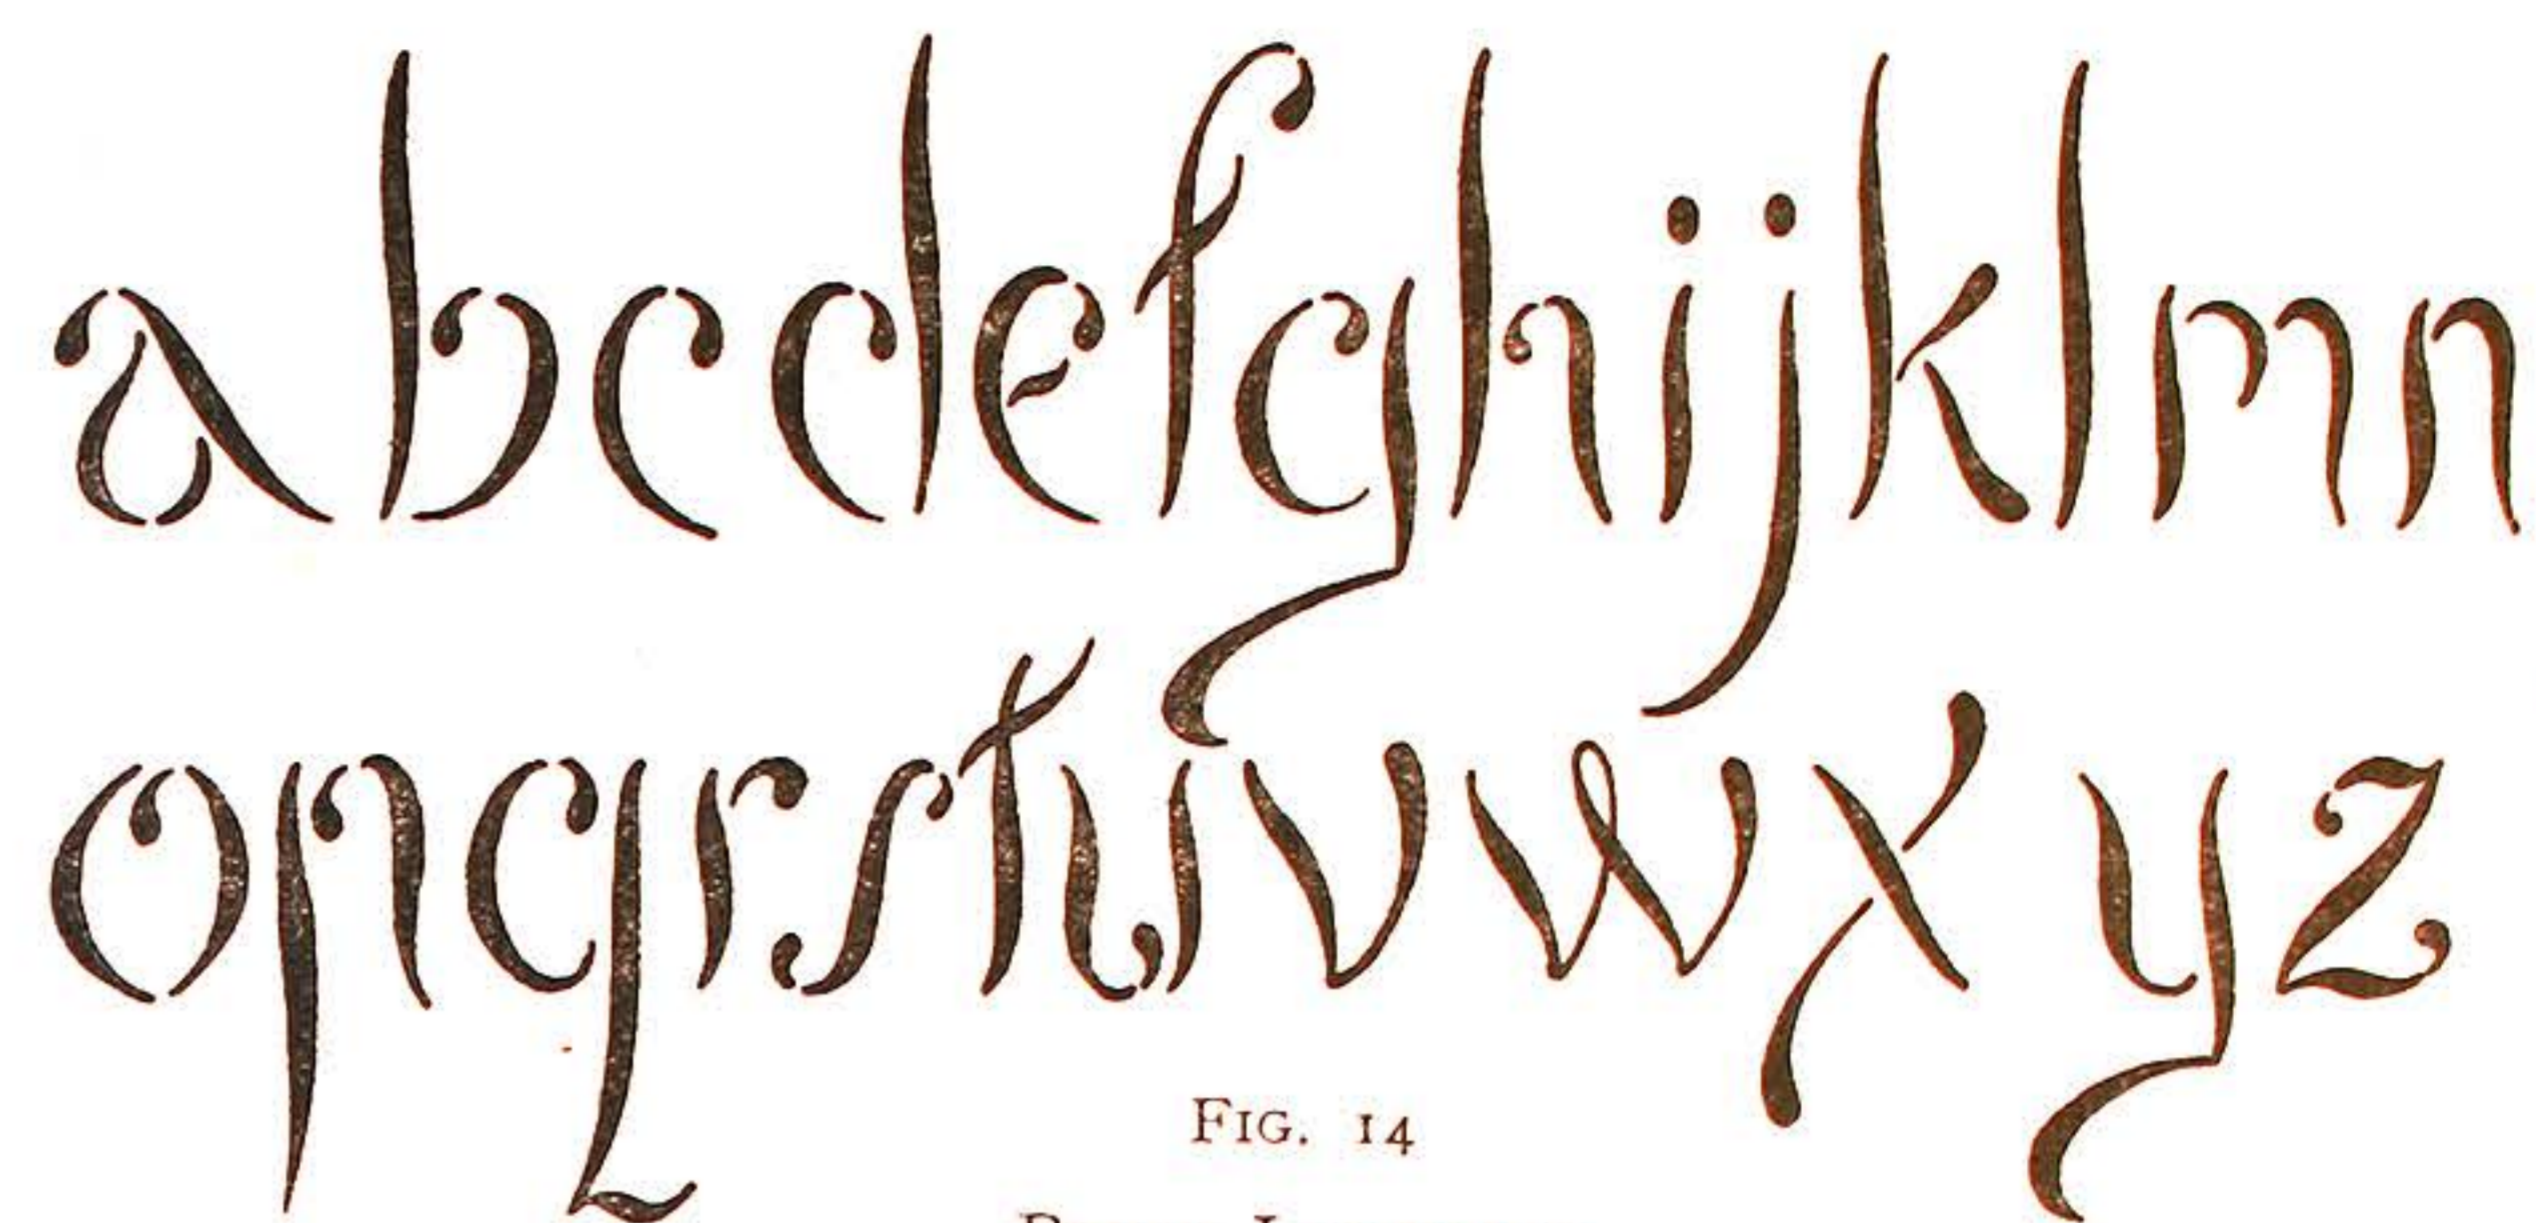 abcdefghijklmn
opqrstuvwxyz
FIG. 14